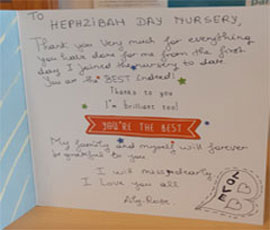 TO HEPHZIBAH DAY NURSERY,
Thank you very much for everything
you have done for me from the first
day I joined the nursery to date.
You are the BEST indeed!
Thanks to you
I'm brilliant too!
YOU'RE THE BEST
My family and myself will forever
be grateful to you
I will miss dearly
I love you all
LOVE